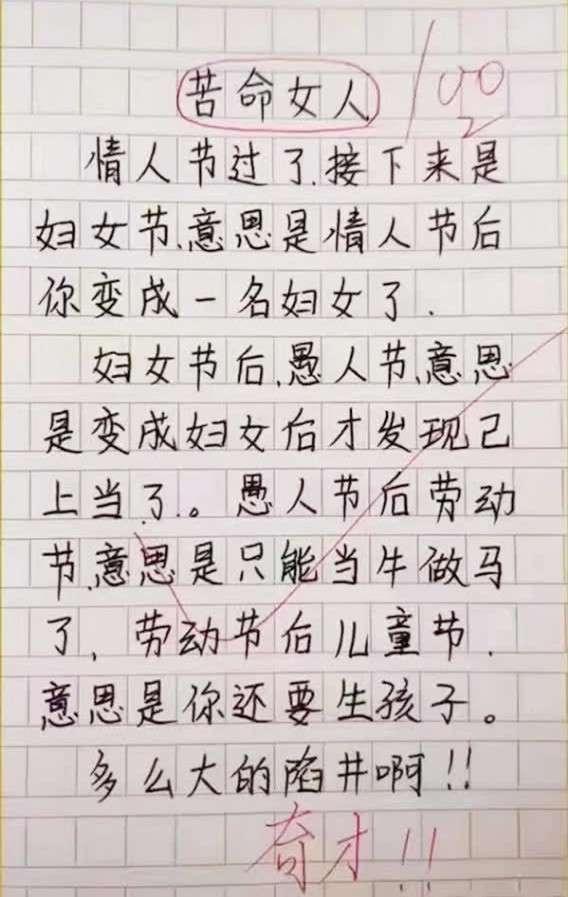 苦命女人
100
情人节过了.接下来是
妇女节.意思是情人节后
你变成一名妇女了.
妇女节后.愚人节.意思
是变成妇女后才发现己
上当了。愚人节后劳动
节.意思是只能当牛做马
了,劳动节后儿童节.
意思是你还要生孩子。
多么大的陷井啊!!
奇才!!